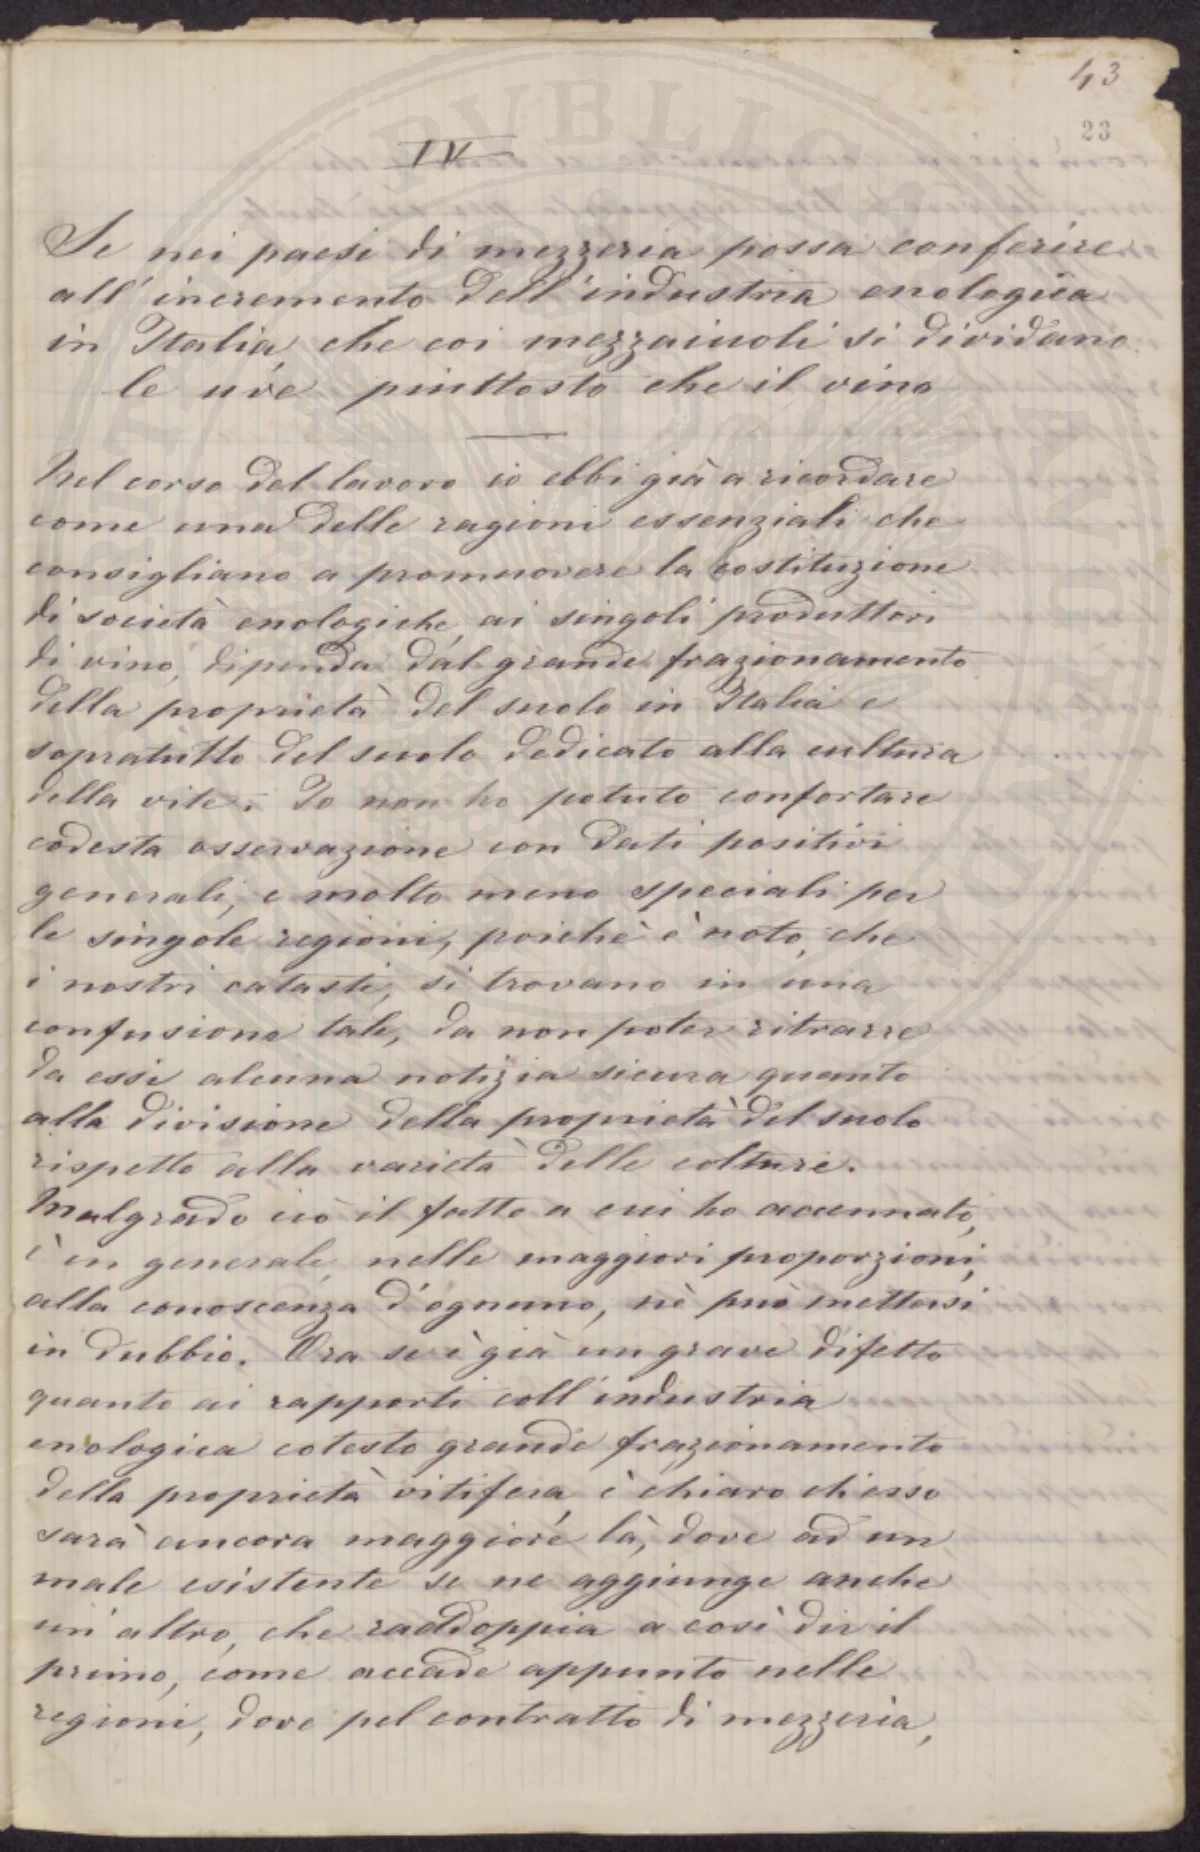 43
23
IV
Se nei paesi di mezzeria possa conferire
all'incremento dell'industria enologica
in Italia, che coi mezzaiuoli si dividano
le uve piuttosto che il vino
Nel corso del lavoro io ebbi già a ricordare
come una delle ragioni essenziali che
consigliano a promuovere la costituzione
di società enologiche, ai singoli produttori
di vino, dipenda dal grande frazionamento
della proprietà del suolo in Italia e
sopratutto del suolo dedicato alla cultura
della vite. Io non ho potuto confortare
codesta osservazione con dati positivi
generali, e molto meno speciali per
le singole regioni, poichè è noto, che
i nostri catasti, si trovano in una
confusione tale, da non poter ritrarre
da essi alcuna notizia sicura quanto
alla divisione della proprietà del suolo
rispetto alla varietà delle colture.
Malgrado ciò il fatto a cui ho accennato,
è in generale, nelle maggiori proporzioni,
alla conoscenza d'ognuno, nè può mettersi
in dubbio. Ora se è già un grave difetto
quanto ai rapporti coll'industria
enologica cotesto grande frazionamento
della proprietà vitifera, è chiaro ch'esso
sarà ancora maggiore là, dove ad un
male esistente se ne aggiunge anche
un'altro, che raddoppia a così dir il
primo, come accade appunto nelle
regioni, dove pel contratto di mezzeria,